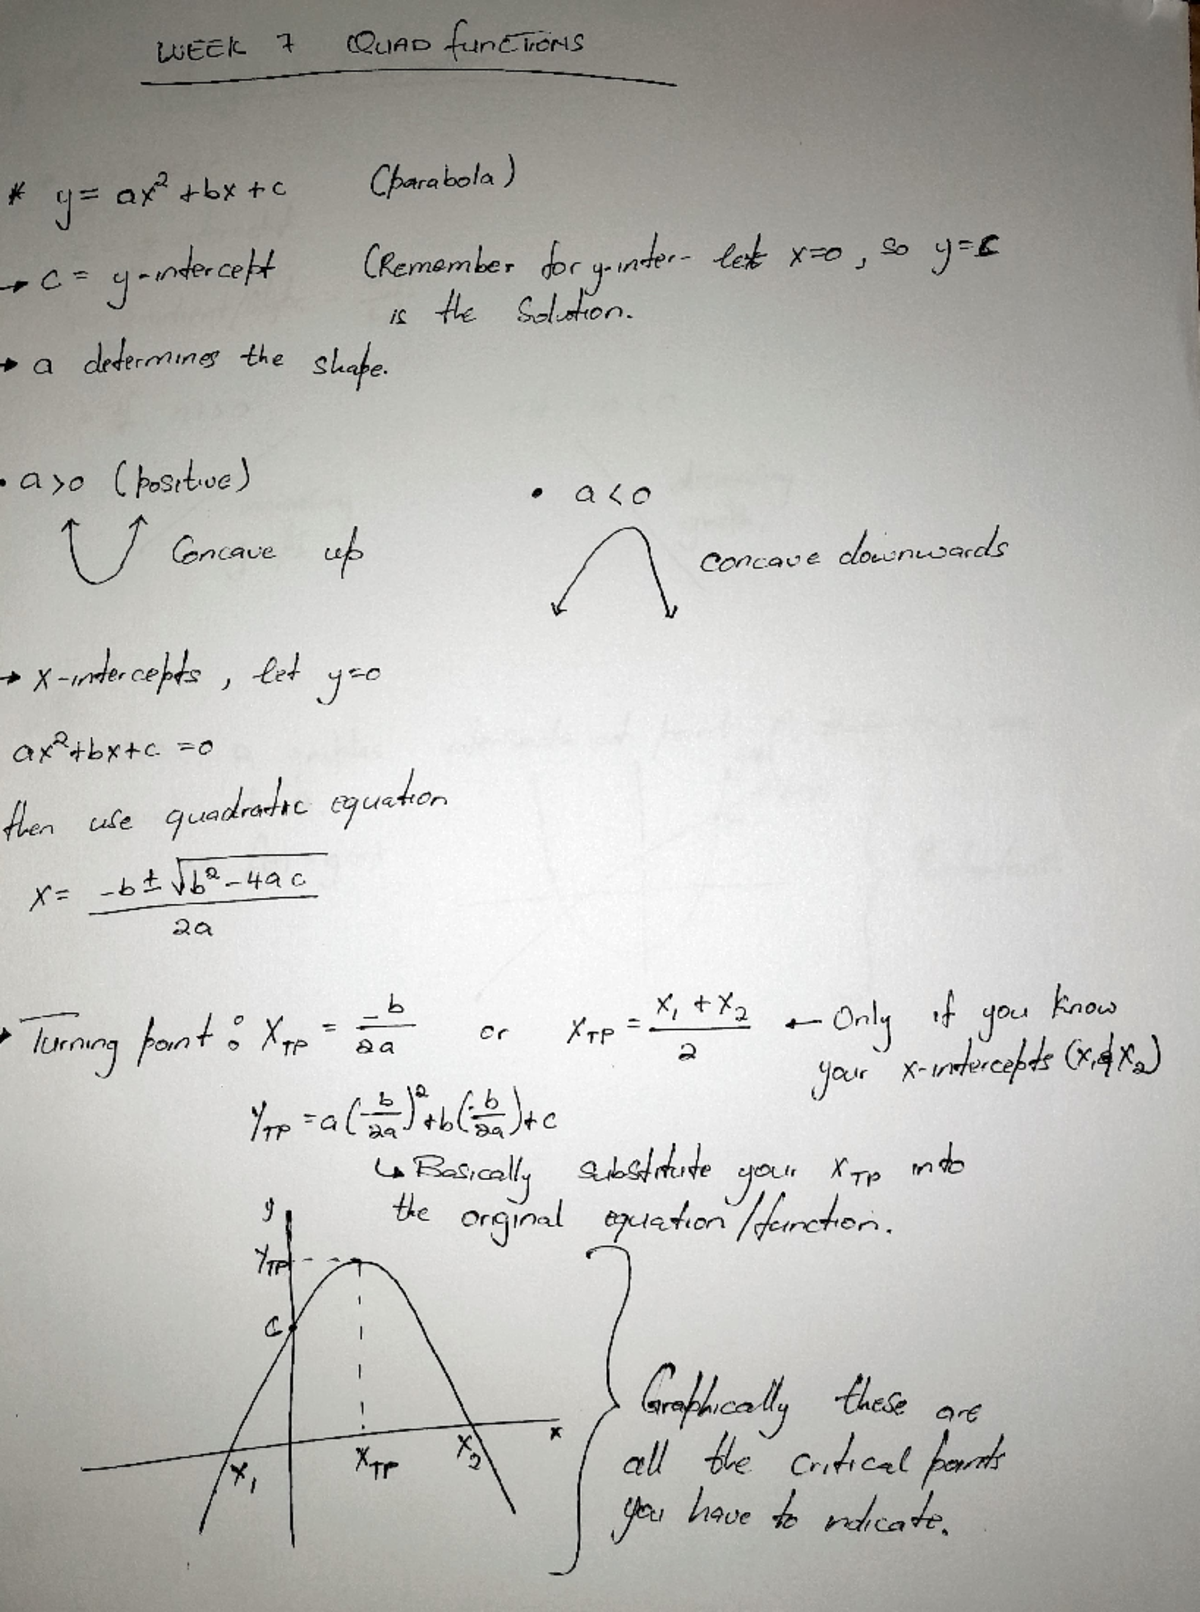 WEEK 7 QUAD functions
* y = ax² + bx + c (parabola)
→ c = y-intercept (Remember for y-inter- let x=0, so y=c
is the Solution.
→ a determines the shape.
• a>0 (positive) • a<0
Concave up concave downwards
→ x-intercepts, let y=0
ax²+bx+c =0
then use quadratic equation
x = (-b ± √(b²-4ac))/2a
→ Turning point: X_TP = -b/2a or X_TP = (x₁ + x₂)/2 ← Only if you know
your x-intercepts (x₁ & x₂)
Y_TP = a(-b/2a)² + b(-b/2a) + c
↳ Basically substitute your X_TP into
the original equation/function.
y
Y_TP
c
x
x₁ X_TP x₂
Graphically these are
all the critical points
you have to indicate.